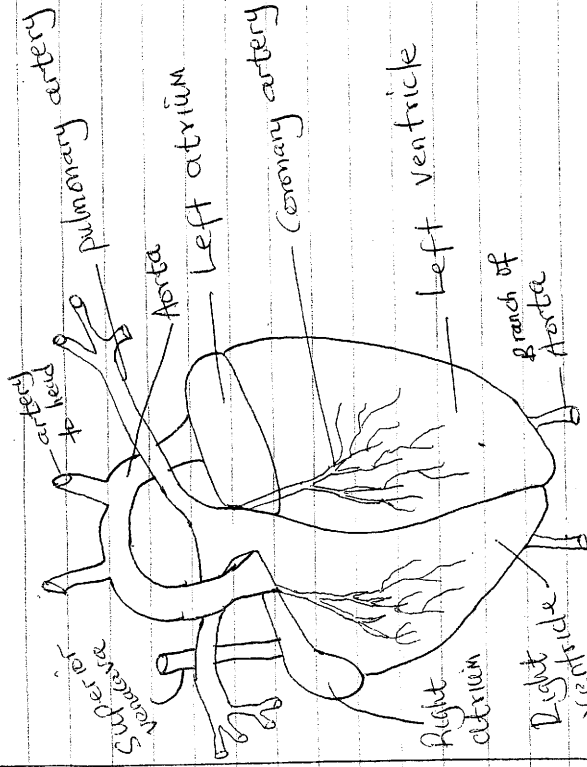 artery
to head
pulmonary artery
Aorta
Left atrium
Coronary artery
Left ventricle
Branch of
Aorta
Superior
venacava
Right
atrium
Right